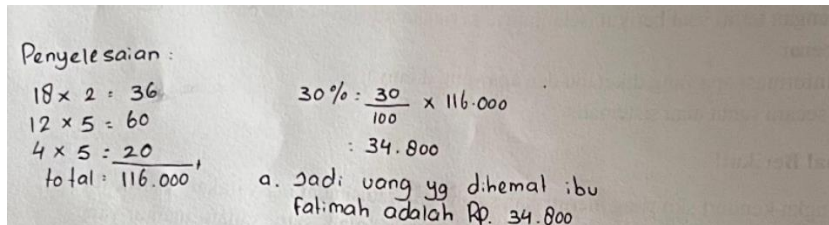 Penyelesaian :
18 x 2 : 36
12 x 5 = 60
4 x 5 : 20
total : 116.000
30% : 30/100 x 116.000
: 34.800
a. Jadi uang yg dihemat ibu
fatimah adalah Rp. 34.800